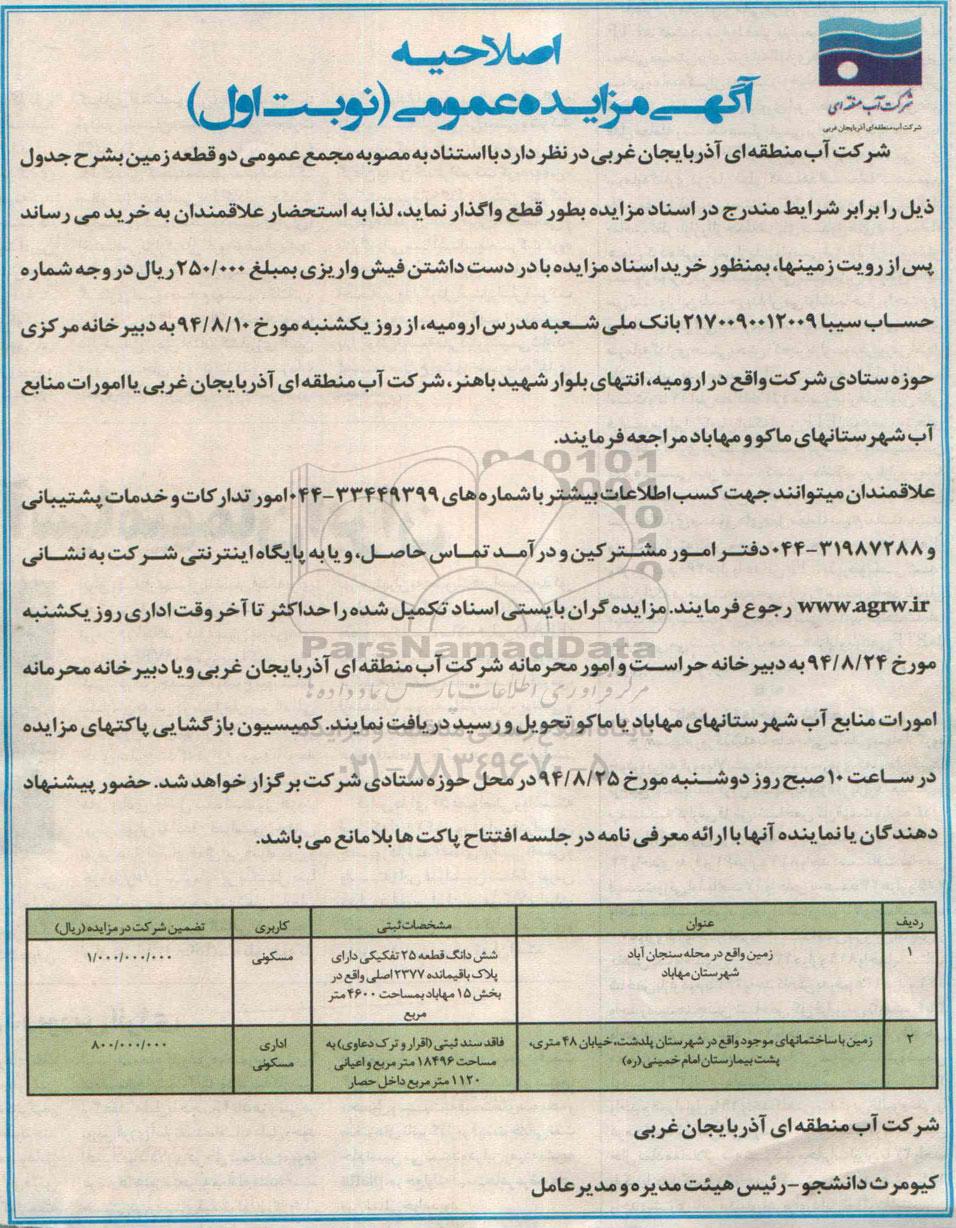 شرکت آب منطقه ای
شرکت آب منطقه ای آذربایجان غربی
اصلاحیه
آگهی مزایده عمومی (نوبت اول)
شرکت آب منطقه ای آذربایجان غربی در نظر دارد با استناد به مصوبه مجمع عمومی دو قطعه زمین بشرح جدول
ذیل را برابر شرایط مندرج در اسناد مزایده بطور قطع واگذار نماید، لذا به استحضار علاقمندان به خرید می رساند
پس از رویت زمینها، بمنظور خرید اسناد مزایده با در دست داشتن فیش واریزی بمبلغ ۲۵۰/۰۰۰ ریال در وجه شماره
حساب سیبا ۲۱۷۰۰۹۰۰۱۲۰۰۹ بانک ملی شعبه مدرس ارومیه، از روز یکشنبه مورخ ۹۴/۸/۱۰ به دبیرخانه مرکزی
حوزه ستادی شرکت واقع در ارومیه، انتهای بلوار شهید باهنر، شرکت آب منطقه ای آذربایجان غربی یا امورات منابع
آب شهرستانهای ماکو و مهاباد مراجعه فرمایند.
علاقمندان میتوانند جهت کسب اطلاعات بیشتر با شماره های ۳۳۴۴۹۳۹۹-۰۴۴ امور تدارکات و خدمات پشتیبانی
و ۳۱۹۸۷۲۸۸-۰۴۴ دفتر امور مشترکین و درآمد تماس حاصل، و یا به پایگاه اینترنتی شرکت به نشانی
www.agrw.ir رجوع فرمایند. مزایده گران بایستی اسناد تکمیل شده را حداکثر تا آخر وقت اداری روز یکشنبه
مورخ ۹۴/۸/۲۴ به دبیرخانه حراست و امور محرمانه شرکت آب منطقه ای آذربایجان غربی و یا دبیرخانه محرمانه
امورات منابع آب شهرستانهای مهاباد یا ماکو تحویل و رسید دریافت نمایند. کمیسیون بازگشایی پاکتهای مزایده
در ساعت ۱۰ صبح روز دوشنبه مورخ ۹۴/۸/۲۵ در محل حوزه ستادی شرکت برگزار خواهد شد. حضور پیشنهاد
دهندگان یا نماینده آنها با ارائه معرفی نامه در جلسه افتتاح پاکت ها بلامانع می باشد.
ParsNamadData
مرکز فرآوری اطلاعات پارس نماد داده ها
۰۲۱-۸۸۳۴۹۶۷۰-۵
ردیف عنوان مشخصات ثبتی کاربری تضمین شرکت در مزایده (ریال)
۱ زمین واقع در محله سنجان آباد شش دانگ قطعه ۲۵ تفکیکی دارای مسکونی ۱/۰۰۰/۰۰۰/۰۰۰
شهرستان مهاباد پلاک باقیمانده ۲۳۷۷ اصلی واقع در
بخش ۱۵ مهاباد بمساحت ۴۶۰۰ متر
مربع
۲ زمین با ساختمانهای موجود واقع در شهرستان پلدشت، خیابان ۴۸ متری، فاقد سند ثبتی (اقرار و ترک دعاوی) به اداری ۸۰۰/۰۰۰/۰۰۰
پشت بیمارستان امام خمینی (ره) مساحت ۱۸۴۹۶ متر مربع و اعیانی مسکونی
۱۱۲۰ متر مربع داخل حصار
شرکت آب منطقه ای آذربایجان غربی
کیومرث دانشجو - رئیس هیئت مدیره و مدیر عامل